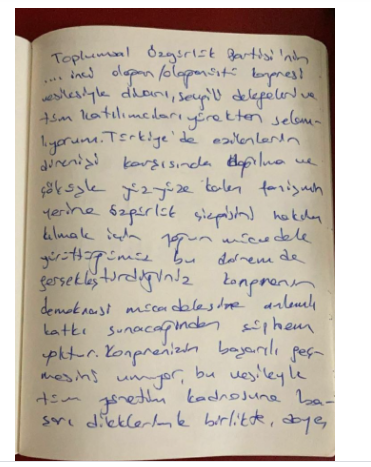 Toplumsal Özgürlük Partisi'nin
.... inci olağan/olağanüstü kongresi
vesilesiyle divanı, sevgili delegeleri ve
tüm katılımcıları yürekten selam-
lıyorum. Türkiye'de ezilenlerin
direnişi karşısında dağılma ve
çöküşle yüz-yüze kalan faşizmin
yerine özgürlük çizgisini hakim
kılmak için yoğun mücadele
yürüttüğümüz bu dönemde
gerçekleştirdiğiniz kongrenin
demokrasi mücadelesine anlamlı
katkı sunacağından şüphem
yoktur. Kongrenizin başarılı geç-
mesini umuyor, bu vesileyle
tüm yönetim kadrosuna ba-
şarı dileklerimle birlikte,